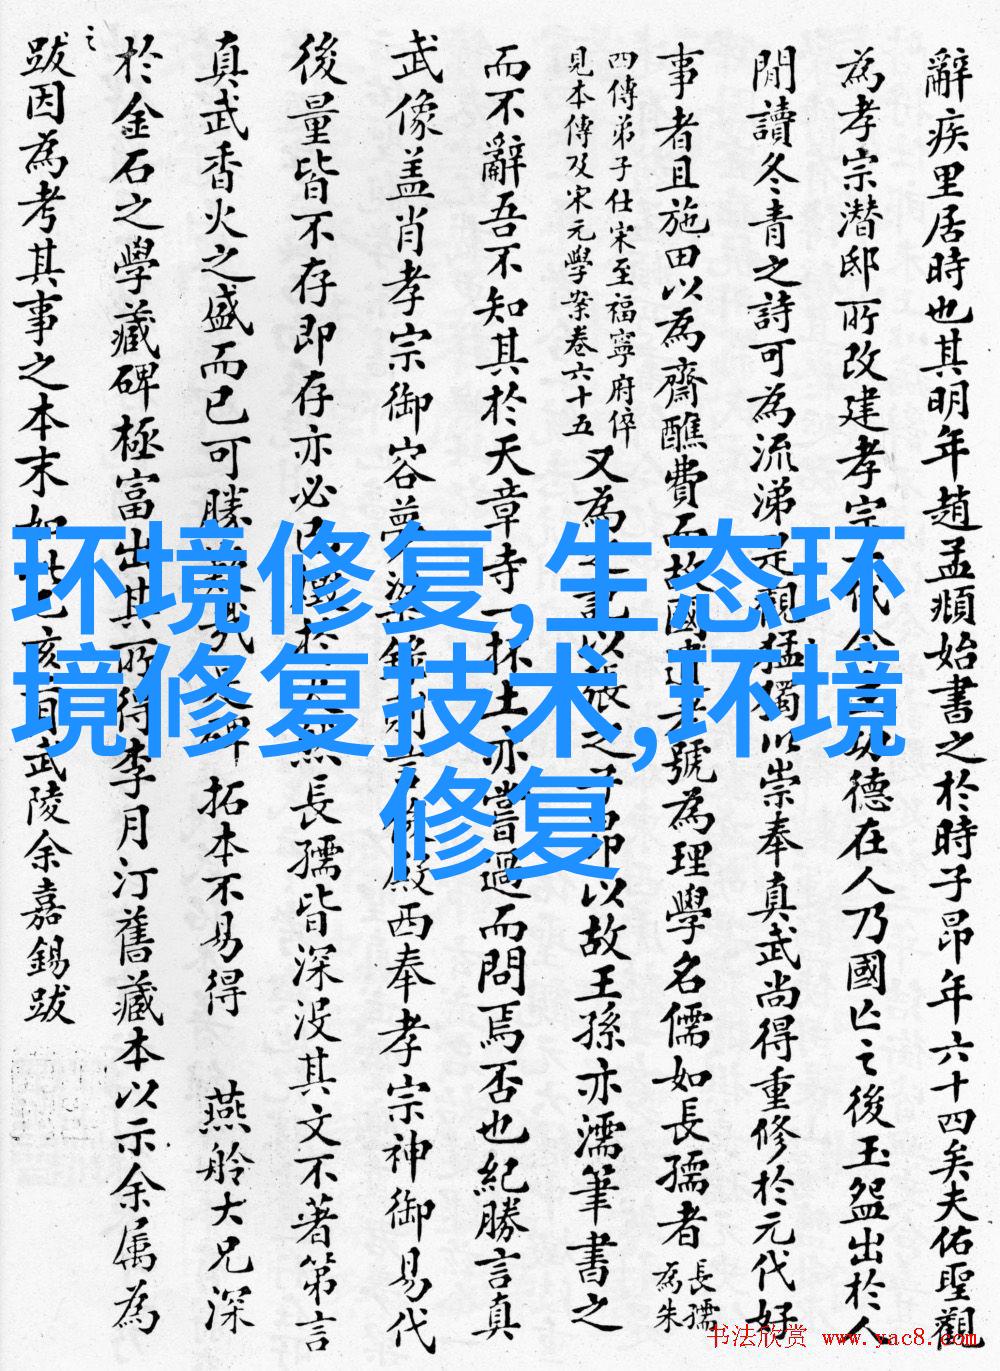 辭疾里居時也其明年趙孟頫始書之於時子昂年六十四矣夫佑聖觀
為孝宗潛邸所改建孝宗一代
德在人乃國亡之後玉盌出於人
間讀冬青之詩可為流涕
猛獨以崇奉真武尚得重修於元代好
事者且施田以為齋醮費而故國
號為理學名儒如長孺者
長孺
為朱
四傳弟子仕宋至福寧府倅
見本傳及宋元學案卷六十五
又為之記以張之子昂以故王孫亦濡筆書之
而不辭吾不知其於天章寺一抔土亦嘗過而問焉否也紀勝言真
武像蓋肖孝宗御容夢
殿西奉孝宗神御易代
後量皆不存即存亦必
長孺皆深沒其文不著第言
真武香火之盛而已可勝
碑拓本不易得 燕舲大兄深
於金石之學藏碑極富出其所得李月汀舊藏本以示余屬為
之
跋因為考其事之本末如此乙亥
武陵余嘉錫跋
环境修复,生态环
境修复技术,环境
修复
书法欣赏 www.yac8.com